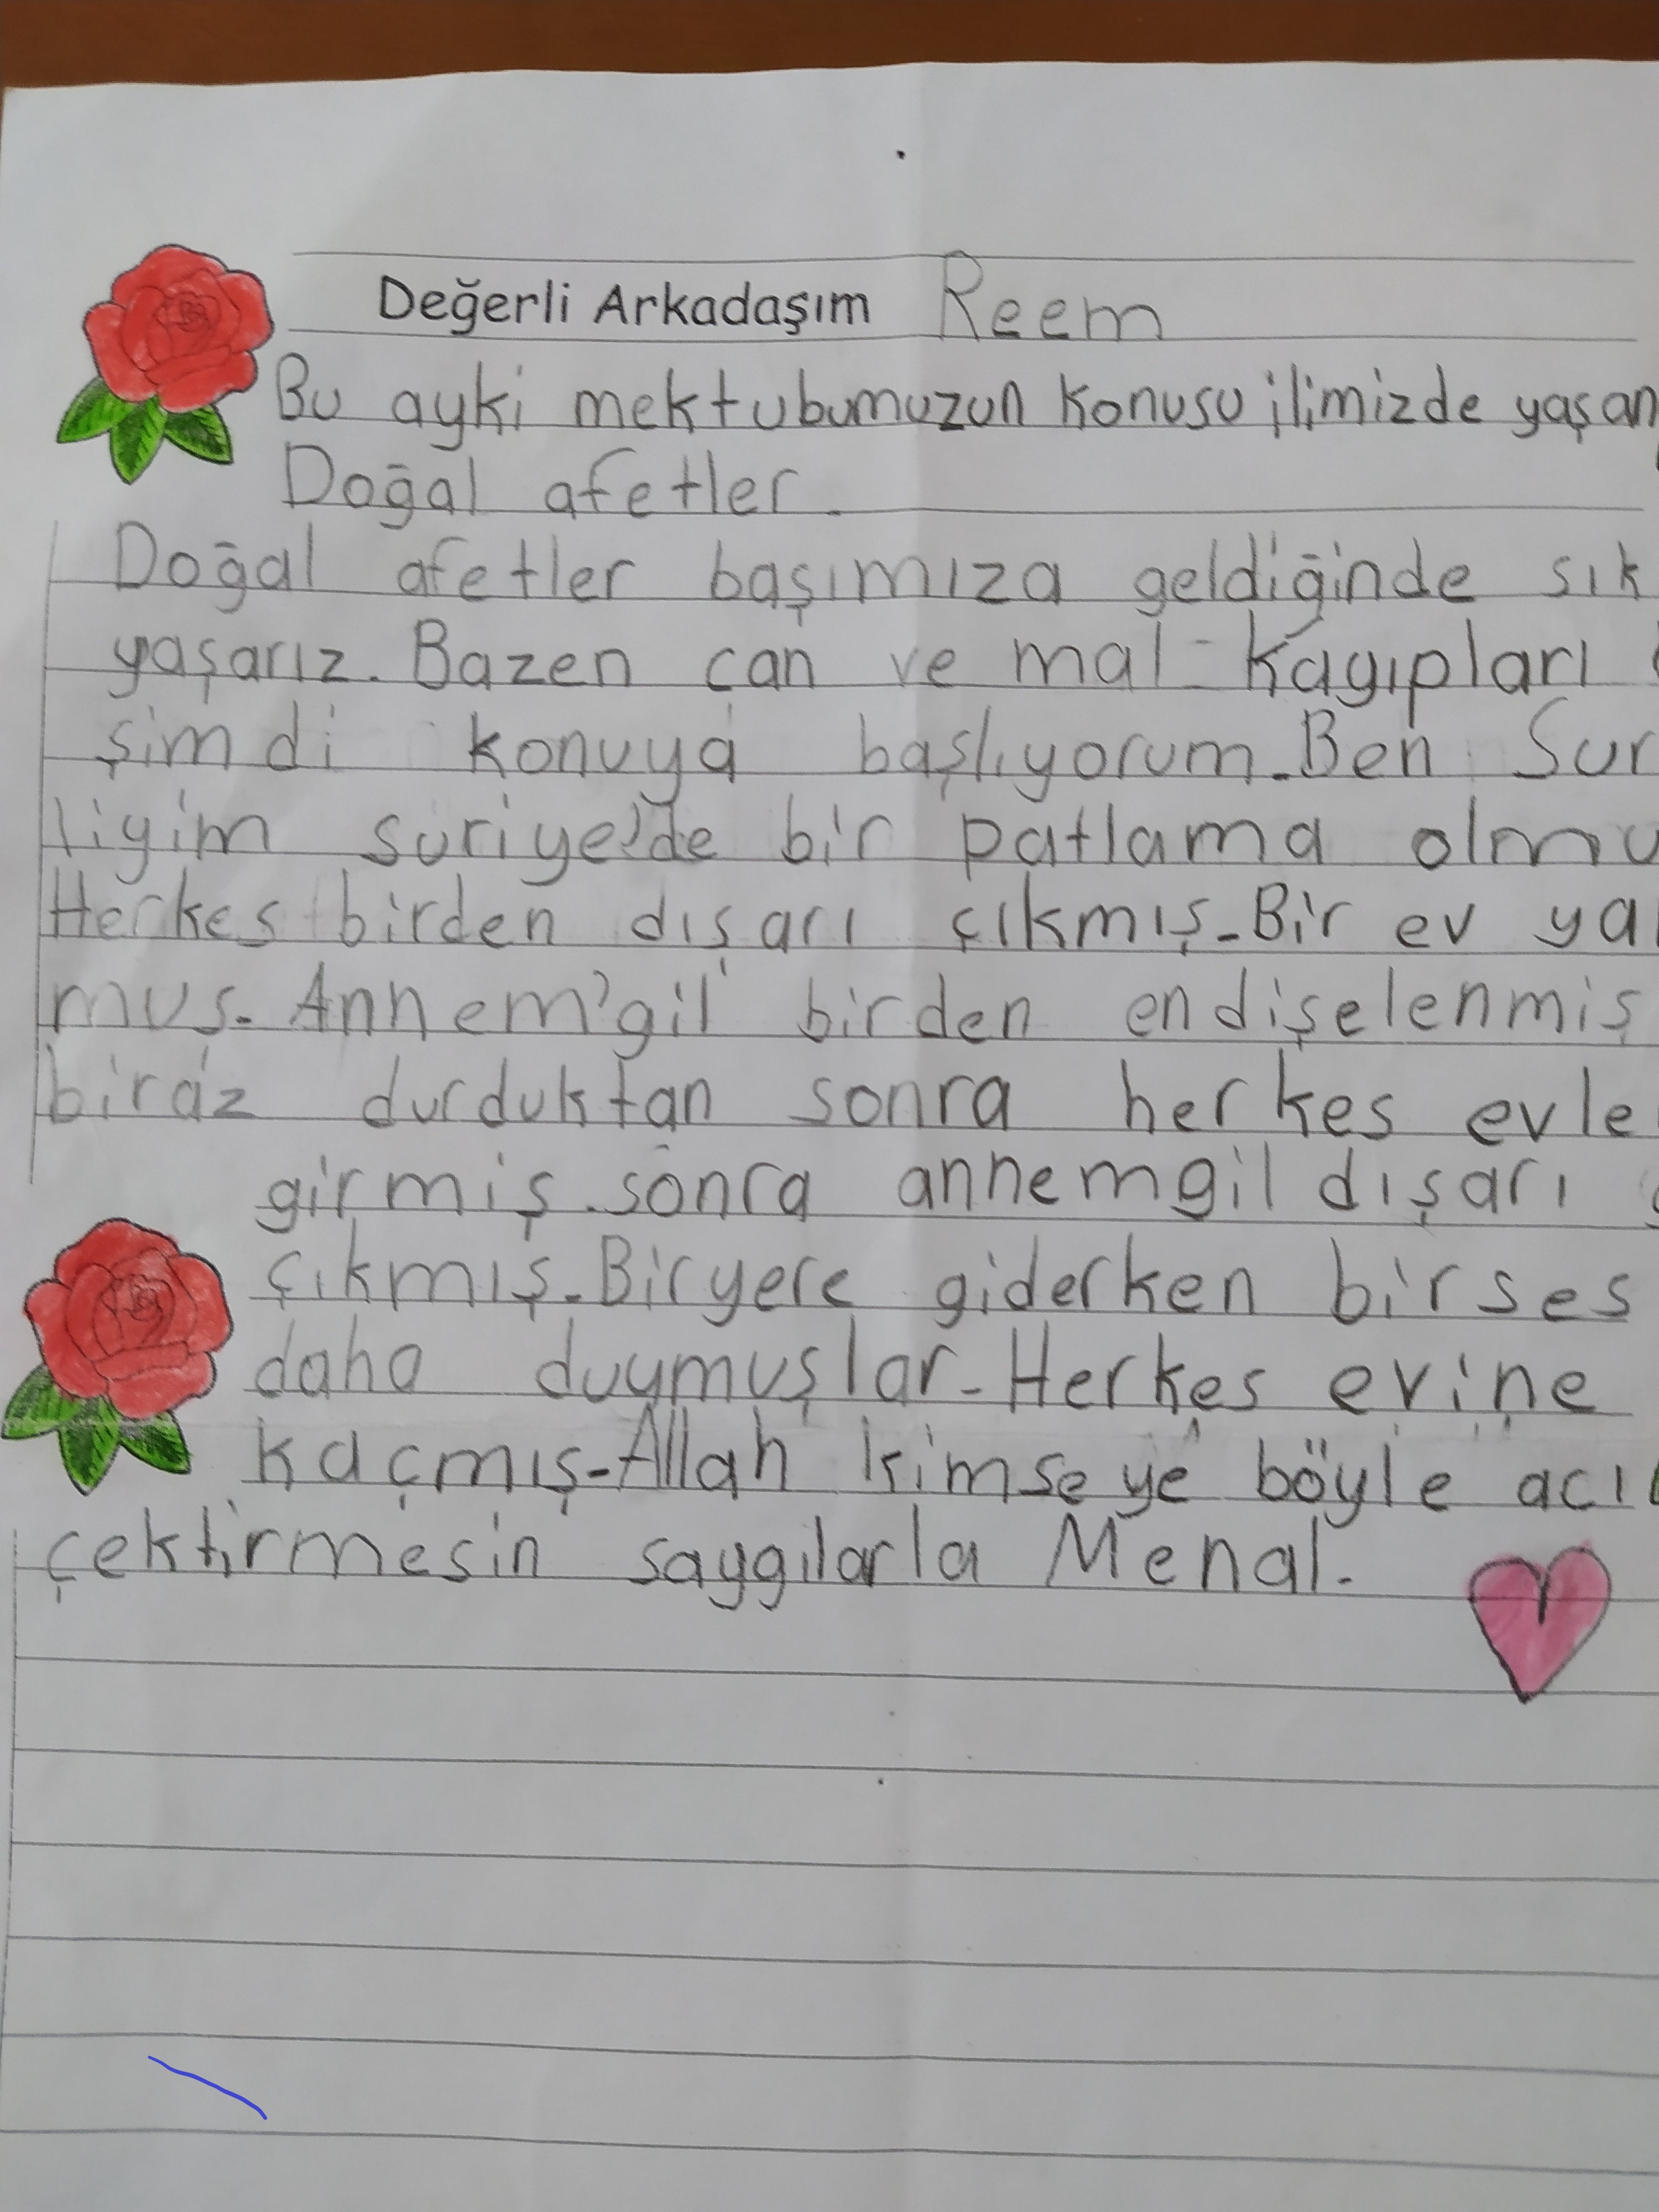 Değerli Arkadaşım Reem
Bu ayki mektubumuzun konusu ilimizde yaşan
Doğal afetler.
Doğal afetler başımıza geldiğinde sık
yaşarız. Bazen can ve mal kayıpları
şimdi konuya başlıyorum. Ben Sur
liyim suriye'de bir patlama olmu
Herkes birden dışarı çıkmış. Bir ev ya
muş. Annem'gil birden endişelenmiş
biraz durduktan sonra herkes evle
girmiş. sonra annemgil dışarı
çıkmış. Biryere giderken birses
daha duymuşlar. Herkes evine
kaçmış. Allah kimseye böyle acı
çektirmesin saygılarla Menal.